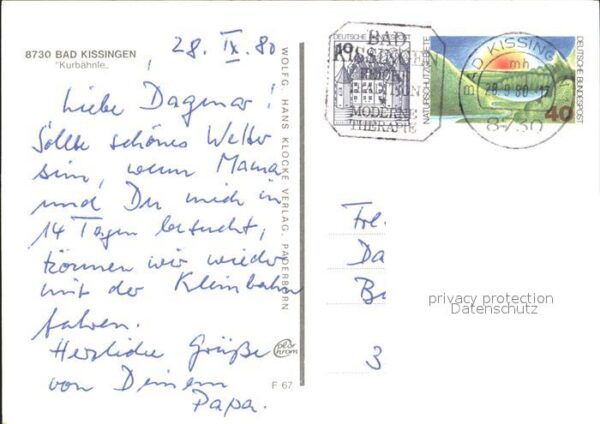 8730 BAD KISSINGEN
"Kurbähnle"
28. IX. 80
Liebe Dagmar!
Sollte schönes Wetter
sein, wenn Mama
und Du mich in
14 Tagen besucht,
können wir wieder
mit der Kleinbahn
fahren.
Herzliche Grüße
von Deinem
Papa.
WOLFG. HANS KLOCKE VERLAG, PADERBORN
F 67
10
DEUTSCHE BUNDESPOST
BAD
KISSINGEN
MODERNE
THERAPIE
NATURSCHUTZGEBIETE
DEUTSCHE BUNDESPOST
40
BAD KISSING
mh
8730
Frl.
Da
3
privacy protection
Datenschutz